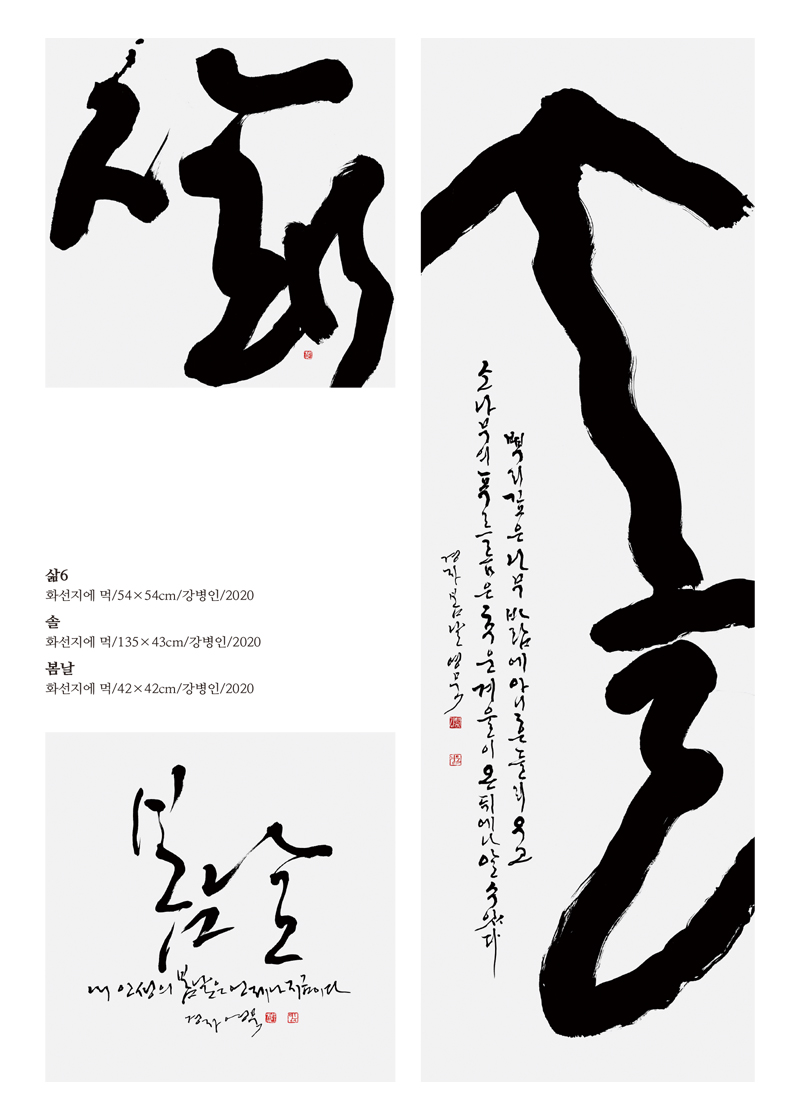 삶
삶6
화선지에 먹/54×54cm/강병인/2020
솔
화선지에 먹/135×43cm/강병인/2020
봄날
화선지에 먹/42×42cm/강병인/2020
봄날
내 인생의 봄날은 언제나 지금이다
경자 영묵
솔
뿌리깊은 나무 바람에 아니 흔들리우고
소나무의 푸르름은 추운 겨울이 온 뒤에나 알 수 있다
경자 봄날 영묵